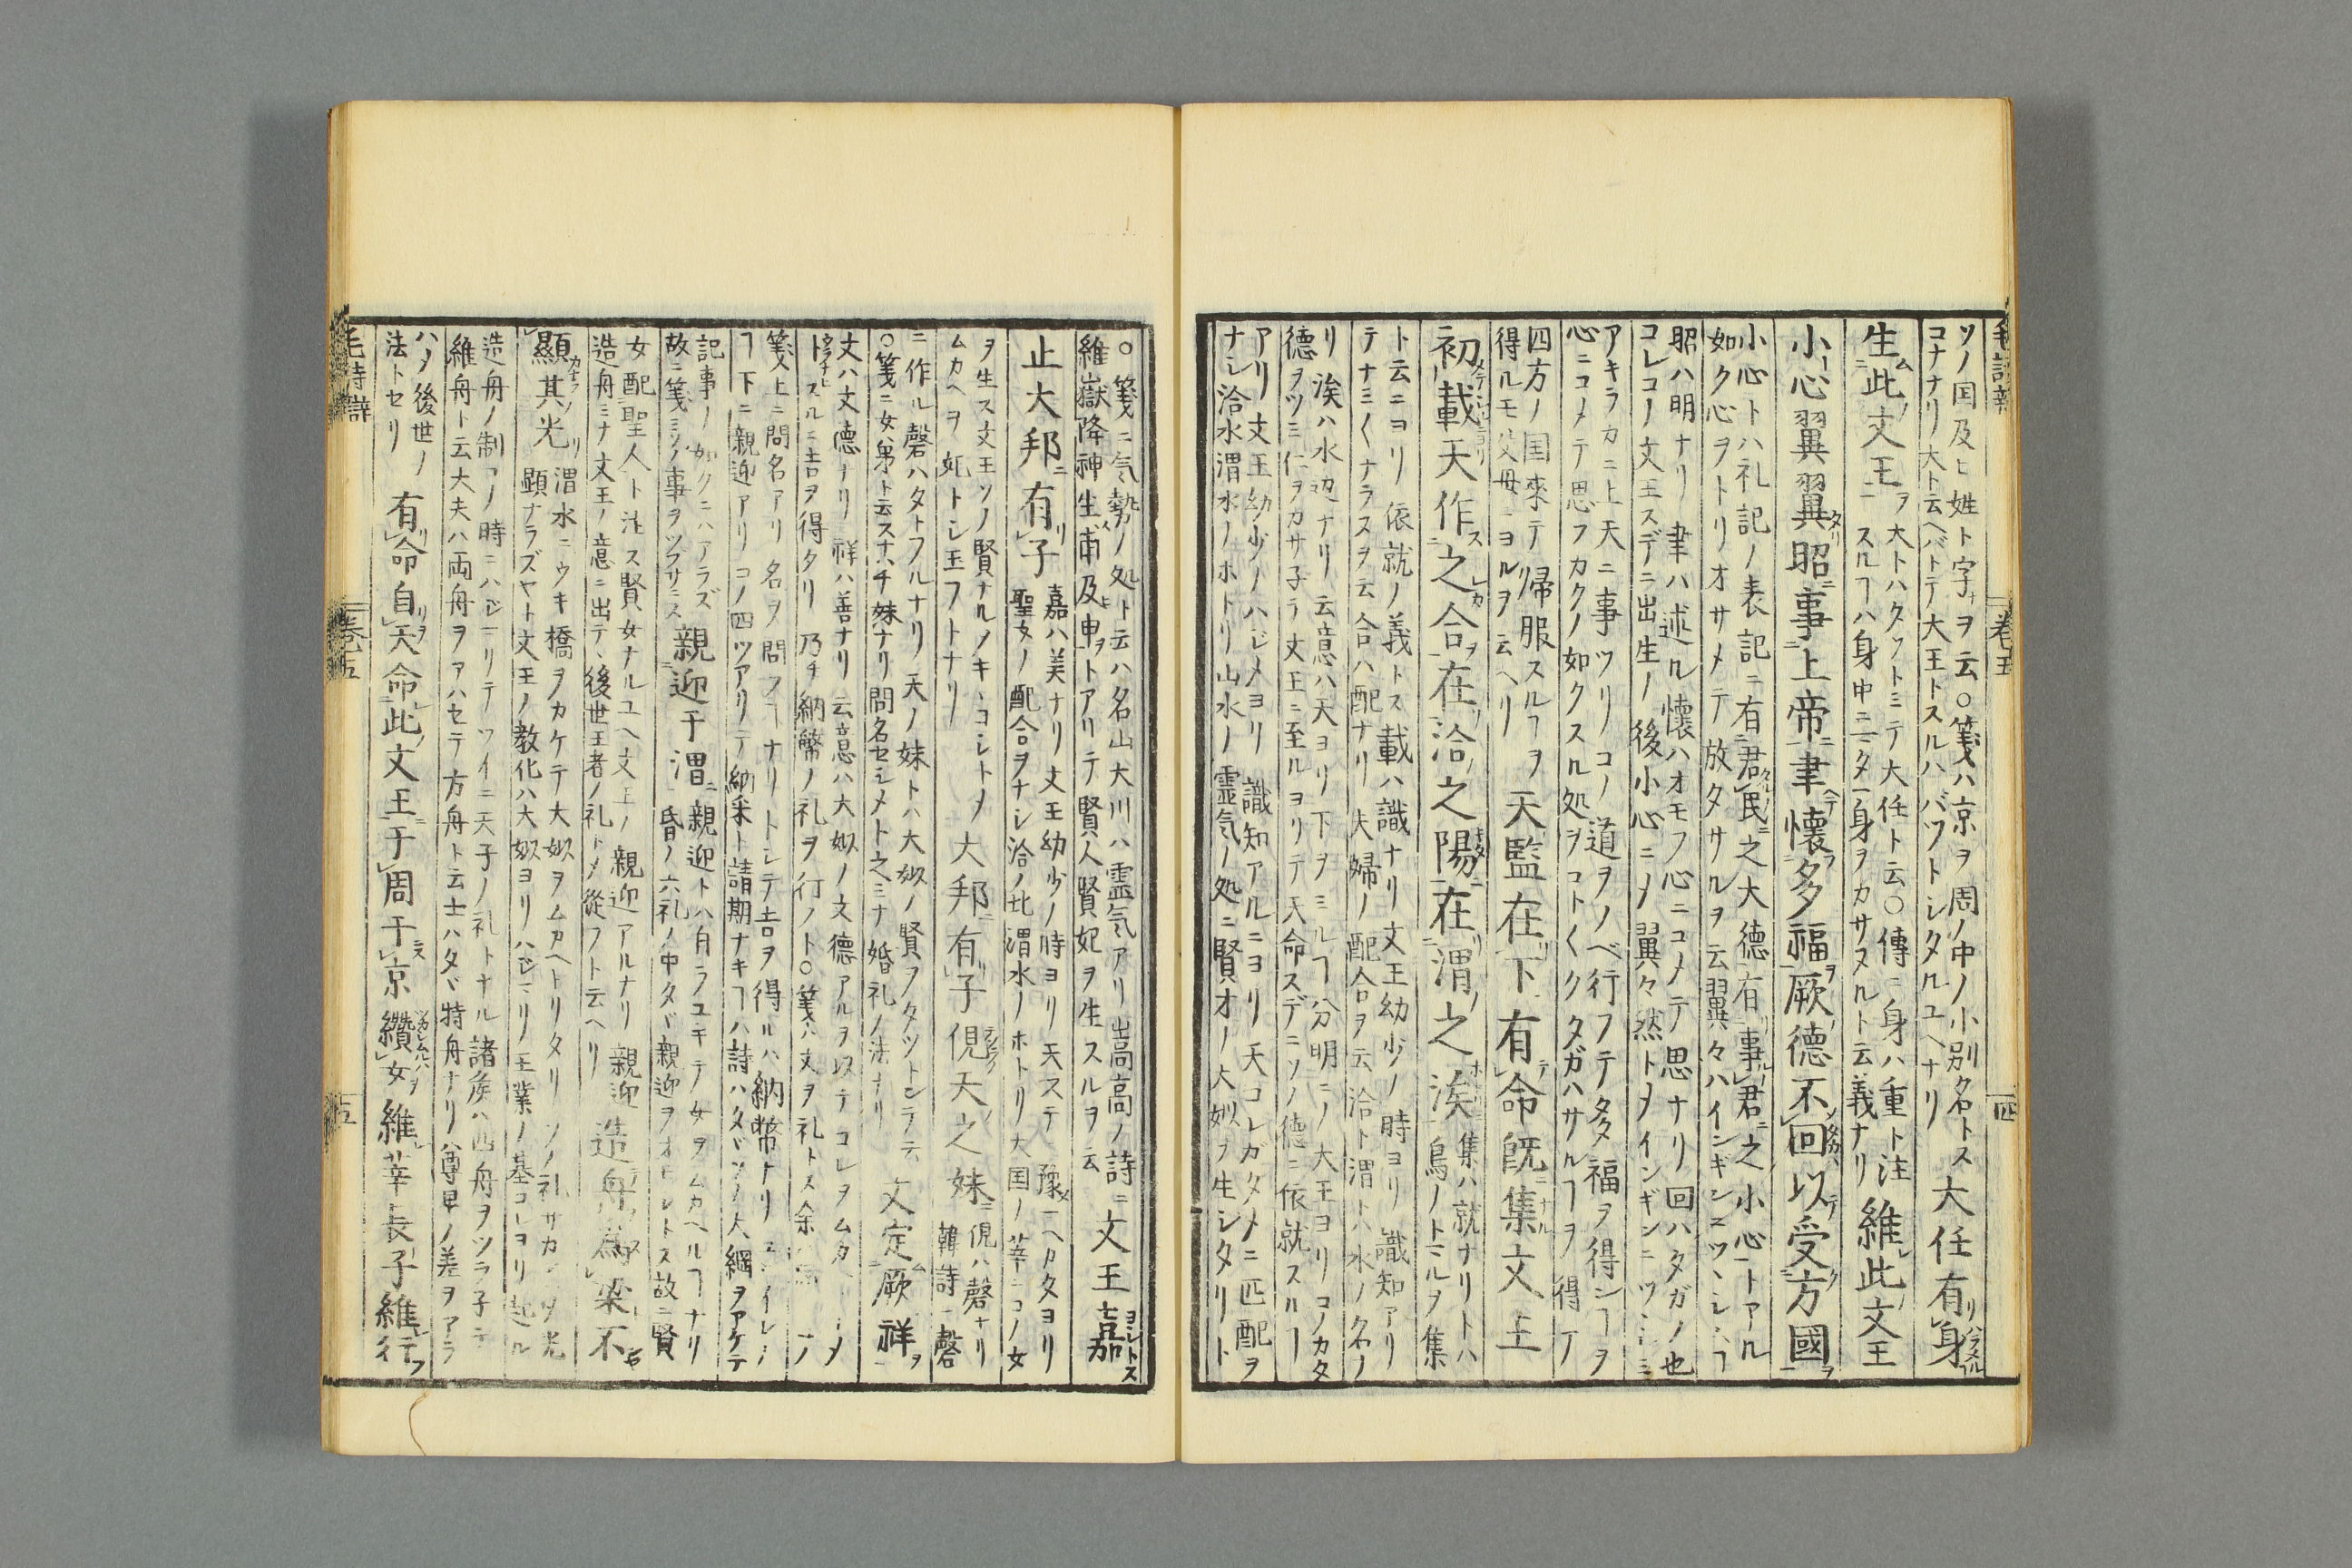 ソノ国及ヒ姓ト字ヲ云○箋ハ京ヲ周ノ中ノ小別名トス
コナナリ大ト云ヘバトテ大王トスルハバツトシタルユヘナリ
大任有身
生此文王
大トハタツトミテ大任ト云○傳ニ身ハ重ト注
スルヿハ身中ニ二タ身ヲカサヌルト云義ナリ
維此文王
小心翼翼昭事上帝聿懷多福厥德不回以受方國
小心トハ礼記ノ表記ニ有君民之大德有事君之小心トアル
如ク心ヲトリオサメテ放タサルヲ云翼々ハインギンニツヽシム
昭ハ明ナリ聿ハ述ル懐ハオモフ心ニコメテ思ナリ回ハタガフ也
コレコノ文王スデニ出生ノ後小心ニメ翼々然トメインギンニツヽシミ
アキラカニ上天ニ事ツリコノ道ヲノベ行フテ多福ヲ得シヿヲ
心ニコメテ思フカクノ如クスル処ヲコト〱クタガハサルヿヲ得
四方ノ国來テ帰服スルヿヲ
得ルモ父母ニヨルヲ云ヘリ
天監在下有命既集文王
初載天作之合在洽之陽在渭之涘
集ハ就ナリトハ
鳥ノトマルヲ集
ト云ニヨリ依就ノ義トス載ハ識ナリ文王幼少ノ時ヨリ識知アリ
テナミ〱ナラヌヲ云合ハ配ナリ夫婦ノ配合ヲ云洽ト渭トハ水ノ名ノ
リ涘ハ水辺ナリ云意ハ天ヨリ下ヲミルヿ分明ニメ大王ヨリコノカタ
德ヲツミ仁ヲカサ子テ文王ニ至ルヨリテ天命スデニソノ德ニ依就スルヿ
アリ文王幼少ノハジメヨリ識知アルニヨリ天コレガタメニ匹配ヲ
ナシ洽水渭水ノホトリ山水ノ霊気ノ処ニ賢才ノ大姒ヲ生シタリト
○箋ニ気勢ノ処ト云ハ名山大川ハ霊気アリ崧高ノ詩ニ
維嶽降神生甫及申トアリテ賢人賢妃ヲ生スルヲ云
文王嘉
止大邦有子
嘉ハ美ナリ文王幼少ノ時ヨリ天ステ豫メヘカタヨリ
聖女ノ配合ヲナシ洽ノ北渭水ノホトリ大国ノ莘ニコノ女
ヲ生ス文王ソノ賢ナルヲキヽコレトメ
ムカヘヲ妃トシ玉フトナリ
大邦有子俔天之妹
俔ハ磬ナリ
韓詩磬
ニ作ル磬ハタトフルナリ天ノ妹トハ大姒ノ賢ヲタツトンテ云
○箋ニ女弟ト云スナハチ妹ナリ問名セシメト之ミナ婚礼ノ法ナリ
文定厥祥
文ハ文德ナリ祥ハ善ナリ云意ハ大姒ノ文德アルヲ以テコレヲムカ
スルニ吉ヲ得タリ乃チ納幣ノ礼ヲ行フト○箋ハ文ヲ礼トス
箋上ニ問名アリ名ヲ問フヿナリトシテ吉ヲ得ルハ納幣ナリ
下ニ親迎アリコノ四ツアリテ納采ト請期ナキヿハ詩ハタヾソノ大綱ヲアケテ
記事ノ如クニハアラズ
故ニ箋ニソノ事ヲツブサニス
親迎于渭
親迎トハ自ラユキテ女ヲムカヘルヿナリ
昏ノ六礼ノ中タヾ親迎ヲオモシトス故ニ賢
女配聖人ト注ス賢女ナルユヘ文王ノ親迎アルナリ親迎
造舟ミナ文王ノ意ニ出テヽ後世王者ノ礼トメ從フト云ヘリ
造舟為梁不
顯其光
渭水ニウキ橋ヲカケテ大姒ヲムカヘトリタリソノ礼サカンメ光
顕ナラズヤト文王ノ教化ハ大姒ヨリハジマリメ王業ノ基コレヨリ起ル
造舟ノ制コノ時ニハジマリテツイニ天子ノ礼トナル諸侯ハ四舟ヲツラ子テ
維舟ト云大夫ハ両舟ヲアハセテ方舟ト云士ハタヾ特舟ナリハ尊卑ノ差ヲアラ
ハメ後世ノ
法トセリ
有命自天命此文王于周于京纘女維莘長子維行
毛詩辯
卷五
四
毛詩辯
卷五
五